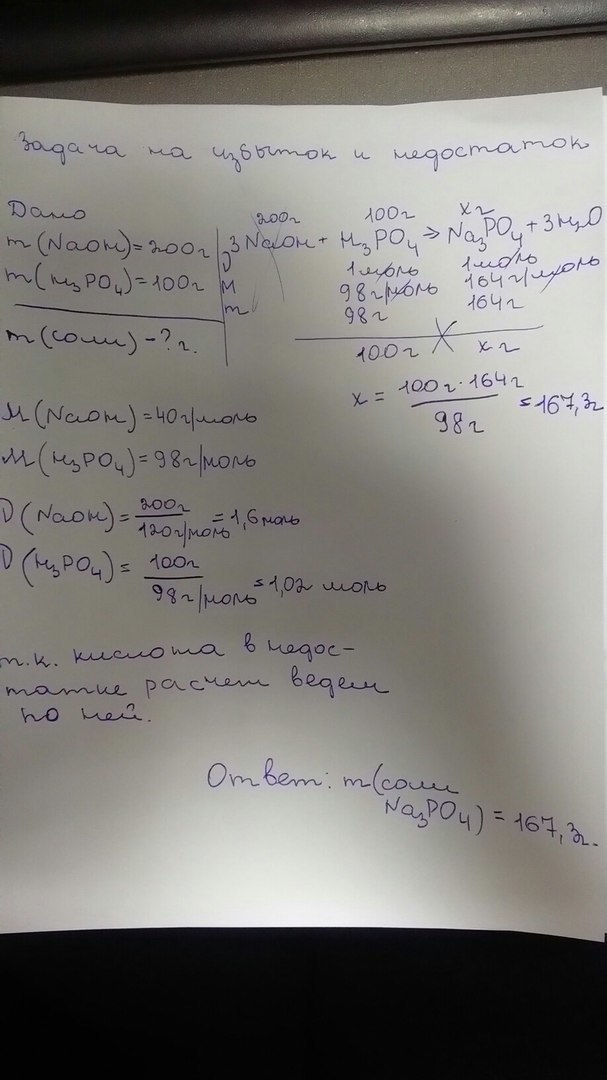 Задача на избыток и недостаток
Дано
m(NaOH)=200г
m(H₃PO₄)=100г
m(соли)-?г.
200г 100г xг
3NaOH + H₃PO₄ → Na₃PO₄ + 3H₂O
ν 1моль 1моль
M 98г/моль 164г/моль
m 98г 164г
100г xг
x = 100г·164г / 98г = 167,3г
M(NaOH)=40г/моль
M(H₃PO₄)=98г/моль
ν(NaOH)= 200г / 120г/моль = 1,6моль
ν(H₃PO₄)= 100г / 98г/моль = 1,02 моль
т.к. кислота в недос-
татке расчет ведем
по ней.
Ответ: m(соли
Na₃PO₄) = 167,3г.